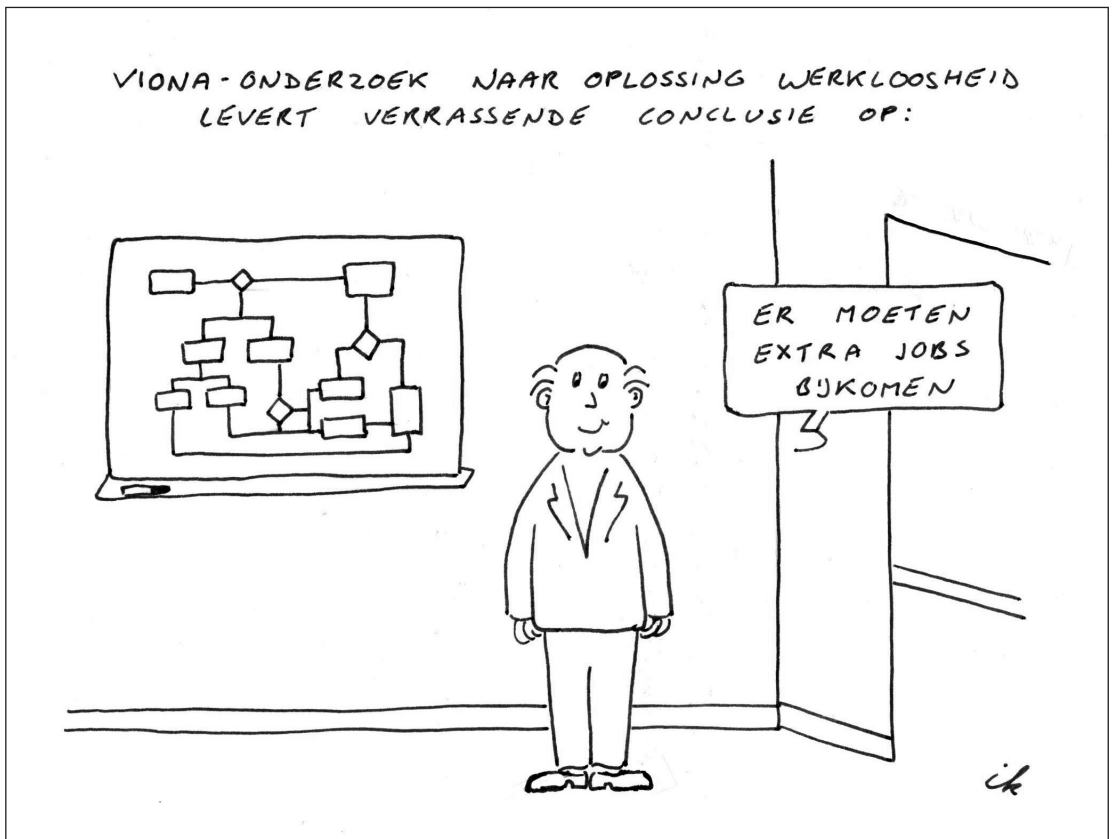 VIONA-ONDERZOEK NAAR OPLOSSING WERKLOOSHEID
LEVERT VERRASSENDE CONCLUSIE OP:
ER MOETEN
EXTRA JOBS
BIJKOMEN
ik